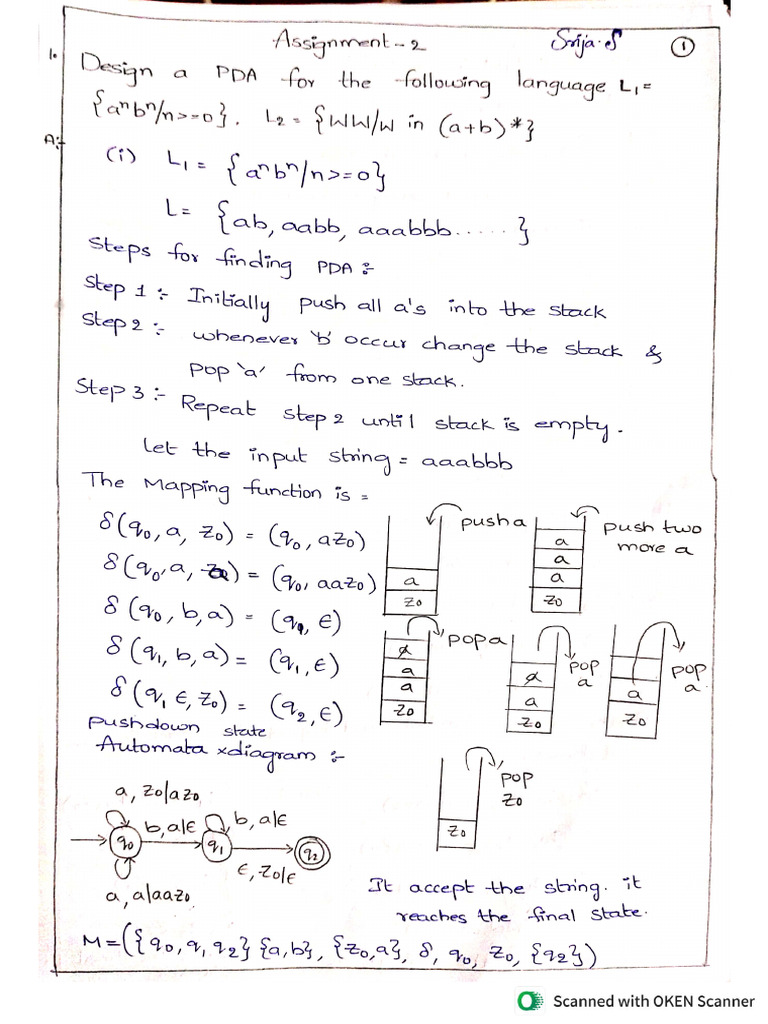 Assignment-2 Srija.S 1
1. Design a PDA for the following language L₁=
{aⁿbⁿ/n>=0}. L₂ = {WW/W in (a+b)*}
A:- (i) L₁ = {aⁿbⁿ/n>=0}
L= {ab, aabb, aaabbb.....}
Steps for finding PDA:-
Step 1:- Initially push all a's into the stack
Step 2:- whenever 'b' occur change the stack &
pop 'a' from one stack.
Step 3:- Repeat step 2 until stack is empty.
let the input string = aaabbb
The Mapping function is =
δ(q₀, a, z₀) = (q₀, az₀)
δ(q₀, a, a) = (q₀, aaz₀)
δ(q₀, b, a) = (q₁, ε)
δ(q₁, b, a) = (q₁, ε)
δ(q₁ ε, z₀) = (q₂, ε)
push a
a
z₀
push two
more a
a
a
a
z₀
pop a
a
a
a
z₀
pop
a
a
a
z₀
pop
a.
a
z₀
pushdown state
Automata diagram :-
pop
z₀
z₀
a, z₀|az₀
b, a|ε
b, a|ε
q₀
q₁
q₂
ε, z₀|ε
a, a|aaz₀
It accept the string. it
reaches the final state.
M=({q₀, q, q₂} {a,b}, {z₀,a}, δ, q₀, z₀, {q₂})
Scanned with OKEN Scanner